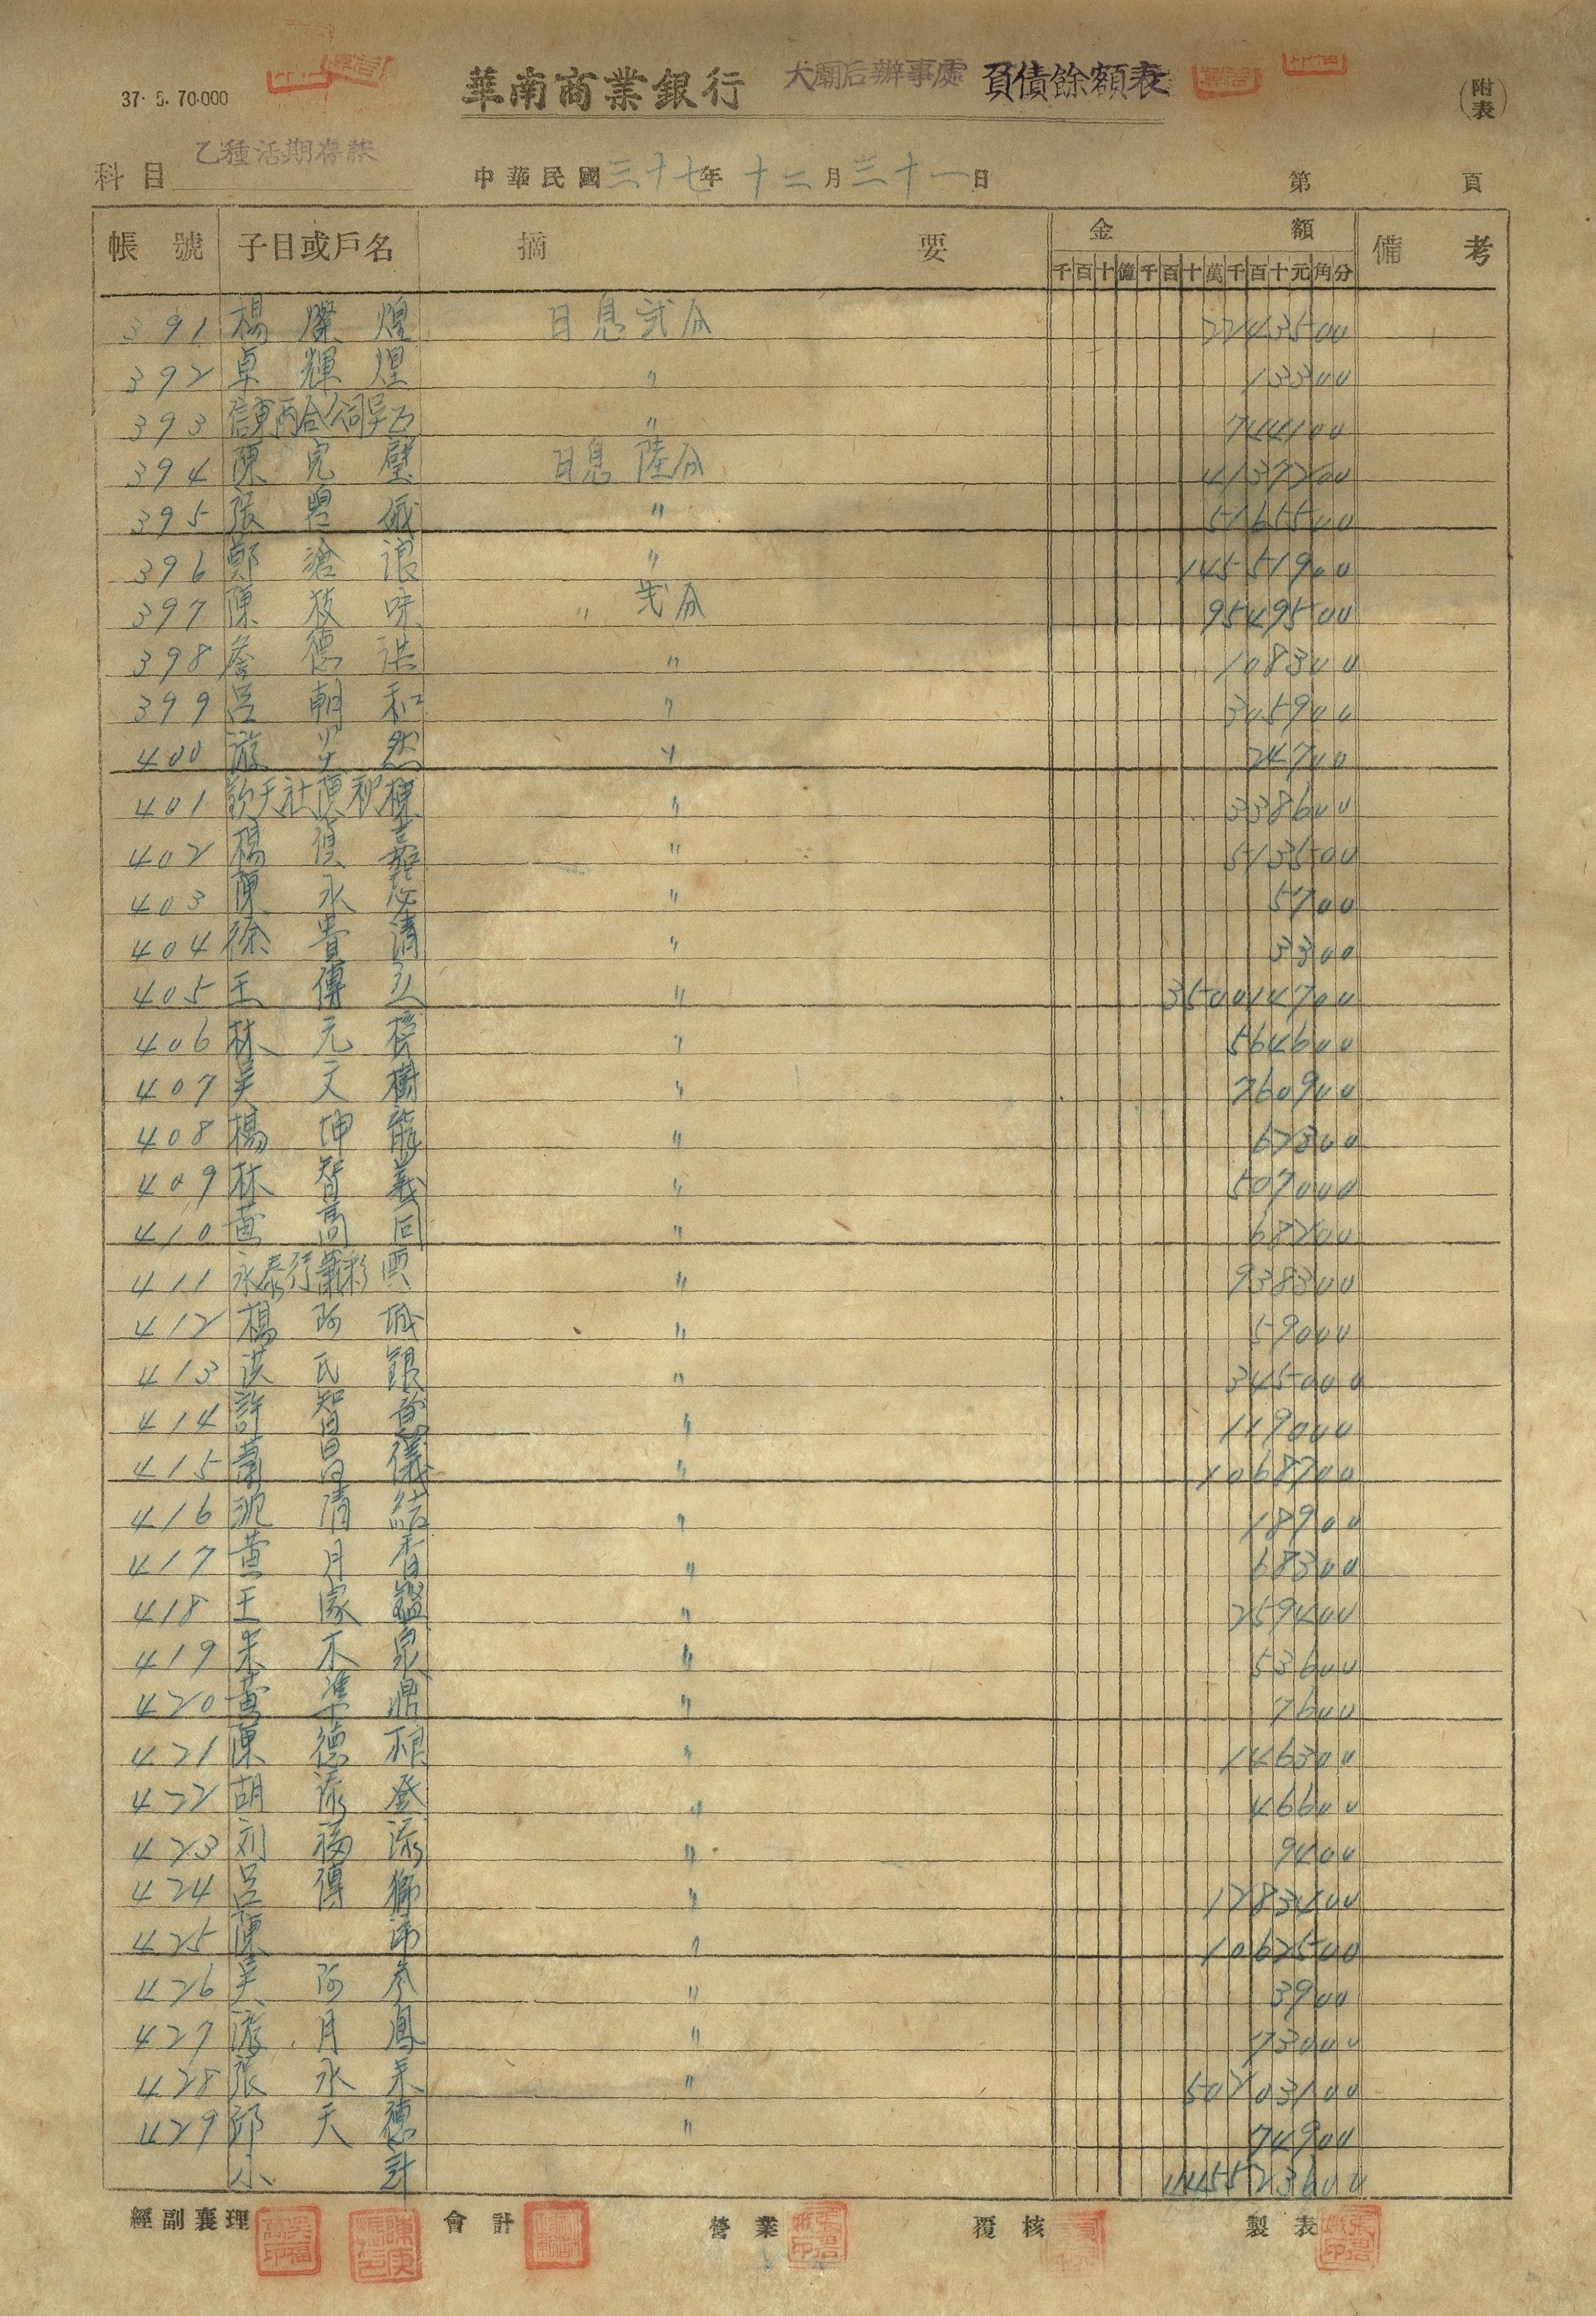 37. 5. 70.000
華南商業銀行 大廟后辦事處 負債餘額表
(附表)
科目 乙種活期存款 中華民國三十七年十二月三十一日 第 頁
帳號 子目或戶名 摘要 金額 備考
千百十億千百十萬千百十元角分
391 楊燦煌 日息弍分 2243500
392 卓輝煌 〃 13300
393 信東兩合公司 〃 744100
394 陳完璧 日息陸分 4137200
395 張碧娥 〃 5165500
396 鄭滄浪 〃 14551900
397 陳枝味 〃弍分 9549500
398 詹德洪 〃 108300
399 呂朝和 〃 305900
400 游 然 〃 24700
401 欽天社陳和棟 〃 338600
402 楊貞嘉 〃 513500
403 陳永 〃 5700
404 徐貴清 〃 3300
405 王傳 〃 350014700
406 林元 〃 564600
407 吳文樹 〃 760900
408 楊坤龍 〃 67800
409 林智義 〃 507000
410 黃高同 〃 68200
411 永泰行蕭彩雲 〃 938300
412 楊阿城 〃 59000
413 洪氏銀 〃 345000
414 許智 〃 119000
415 葉昌儀 〃 1068700
416 沈清結 〃 18900
417 黃月香 〃 68300
418 王家 〃 259400
419 朱木泉 〃 53600
420 黃準鼎 〃 7600
421 陳德根 〃 146300
422 胡添登 〃 46600
423 刘福添 〃 9400
424 呂傳獅 〃 1283400
425 陳 〃 1062500
426 吳阿參 〃 3900
427 游月鳳 〃 73000
428 張永來 〃 50203100
429 邱天德 〃 74900
小計 445523600
經副襄理 會計 營業 覆核 製表